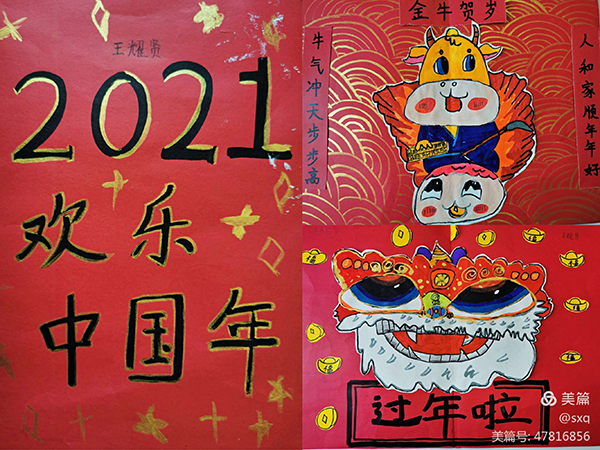 王耀贤
2021
欢乐
中国年
金牛贺岁
牛气冲天步步高
人和家顺年年好
过年啦
美篇
@sxq
美篇号: 47816856